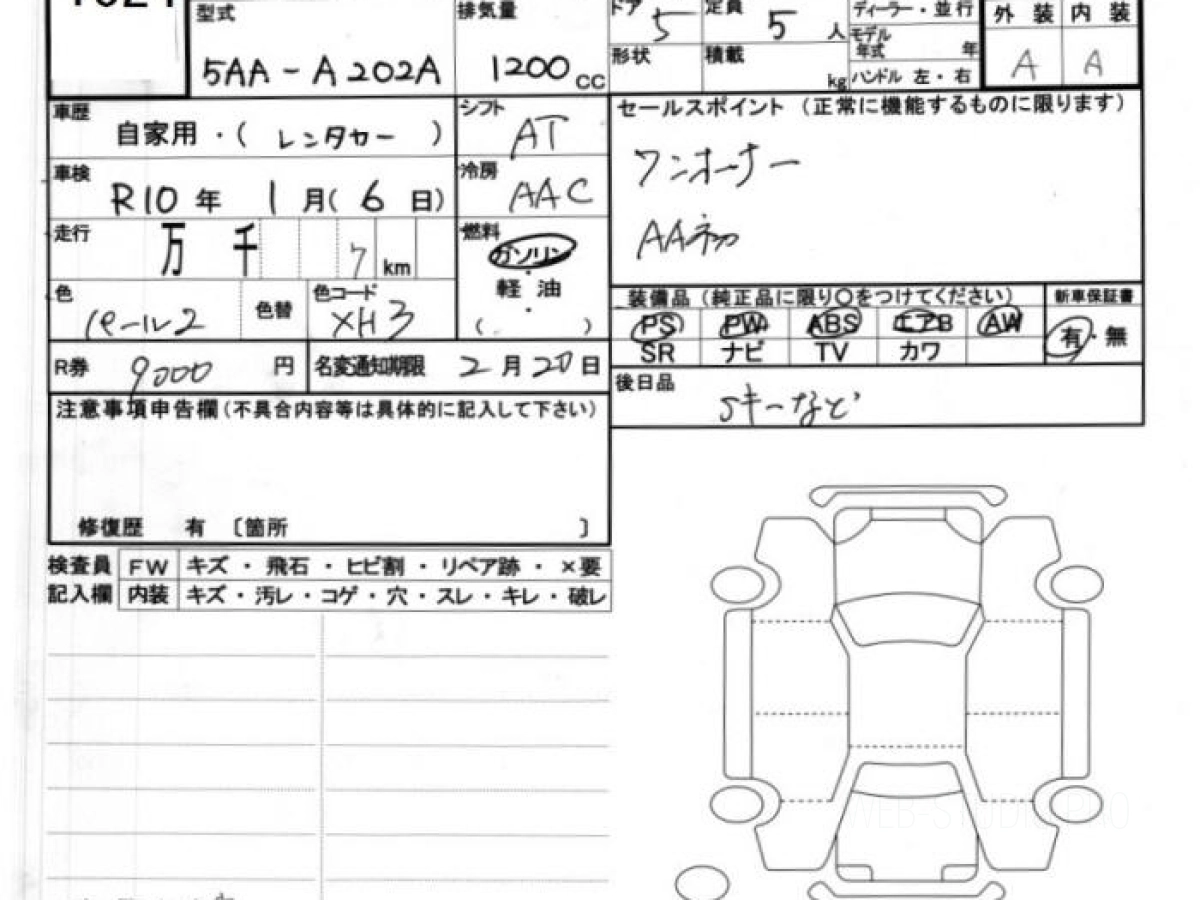 型式
5AA-A202A
排気量
1200 cc
ドア 5
定員 5 人
形状
積載 kg
ディーラー・並行
モデル年式 年
ハンドル 左・右
外装 内装
A A
車歴
自家用・( レンタカー )
シフト
AT
車検
R10年 1月(6日)
冷房
AAC
走行
万 千 7 km
燃料
ガソリン
軽油
( )
色
パール2
色替
色コード
XH3
R券 9000 円
名変通知期限 2月20日
セールスポイント (正常に機能するものに限ります)
ワンオーナー
AA初
装備品 (純正品に限り○をつけてください)
新車保証書
PS PW ABS エアB AW
有・無
SR ナビ TV カワ
後日品
Sキーなど
注意事項申告欄(不具合内容等は具体的に記入して下さい)
修復歴 有 〔箇所 〕
検査員記入欄
FW キズ・飛石・ヒビ割・リペア跡・×要
内装 キズ・汚レ・コゲ・穴・スレ・キレ・破レ
WEB-STUDIO.PRO